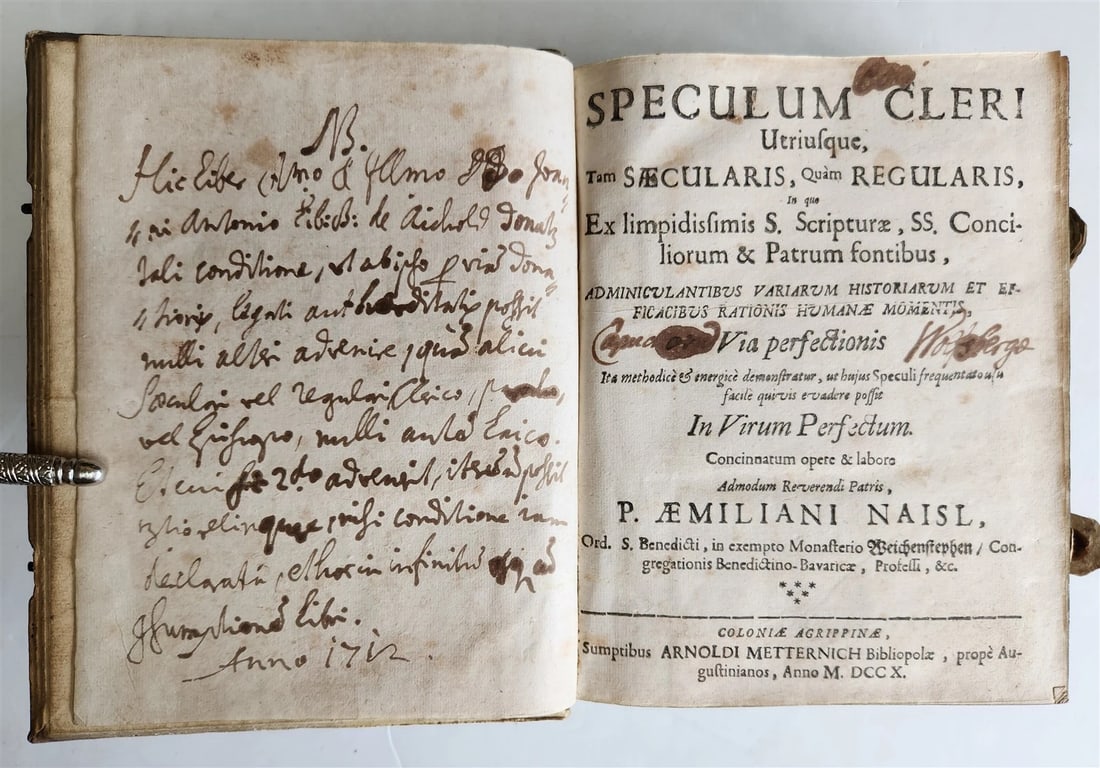 NB.
Hic Liber
Antonio de Aichold Donat
tali conditione, ut ab ipso per viam dona
legati aut hereditatis possit
nulli alteri advenire, quam alicui
Sæculari vel regulari Clerico,
vel Episcopo, nulli autem Laico.
Et cui 2do advenit, possit
nisi conditione iam
declarata, et hoc in infinitum
Libri.
Anno 1712.
SPECULUM CLERI
Utriusque,
Tam SÆCULARIS, Quàm REGULARIS,
In quo
Ex limpidissimis S. Scripturæ, SS. Conci-
liorum & Patrum fontibus,
ADMINICULANTIBVS VARIARVM HISTORIARVM ET EF-
FICACIBVS RATIONIS HUMANÆ MOMENTIS,
Via perfectionis
Ita methodicè & energicè demonstratur, ut hujus Speculi frequentato usu
facilè quivis evadere possit
In Virum Perfectum.
Concinnatum opere & labore
Admodum Reverendi Patris,
P. ÆMILIANI NAISL,
Ord. S. Benedicti, in exempto Monasterio Weichenstephen / Con-
gregationis Benedictino-Bavaricæ, Professi, &c.
COLONIÆ AGRIPPINÆ,
Sumptibus ARNOLDI METTERNICH Bibliopolæ, propè Au-
gustinianos, Anno M. DCC X.